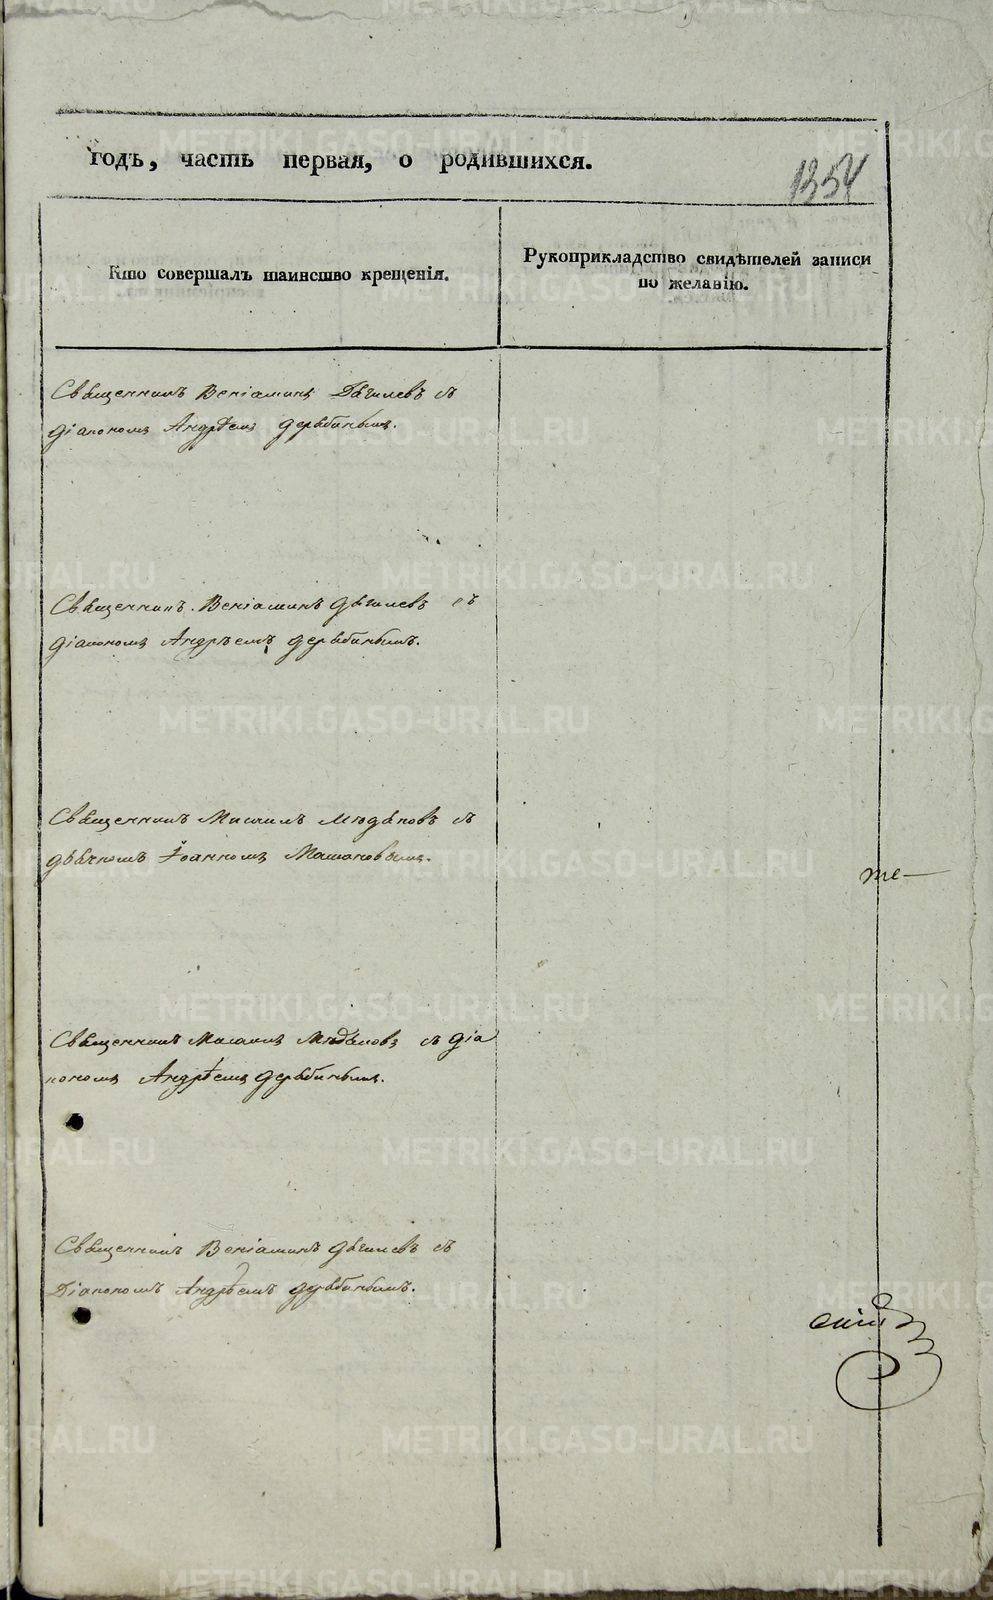 годъ, часть первая, о родившихся.
1354
Кто совершалъ таинство крещенія.
Рукоприкладство свидѣтелей записи
по желанію.
Священникъ Веніаминъ Дягилевъ съ
діакономъ Андрѣемъ Дерябинымъ.
Священникъ Веніаминъ Дягилевъ съ
діакономъ Андрѣемъ Дерябинымъ.
Священникъ Михаилъ съ
дьячкомъ Іоанномъ
Священникъ Михаилъ съ діа
кономъ Андрѣемъ Дерябинымъ.
Священникъ Веніаминъ Дягилевъ съ
Діакономъ Андрѣемъ Дерябинымъ.
METRIKI.GASO-URAL.RU